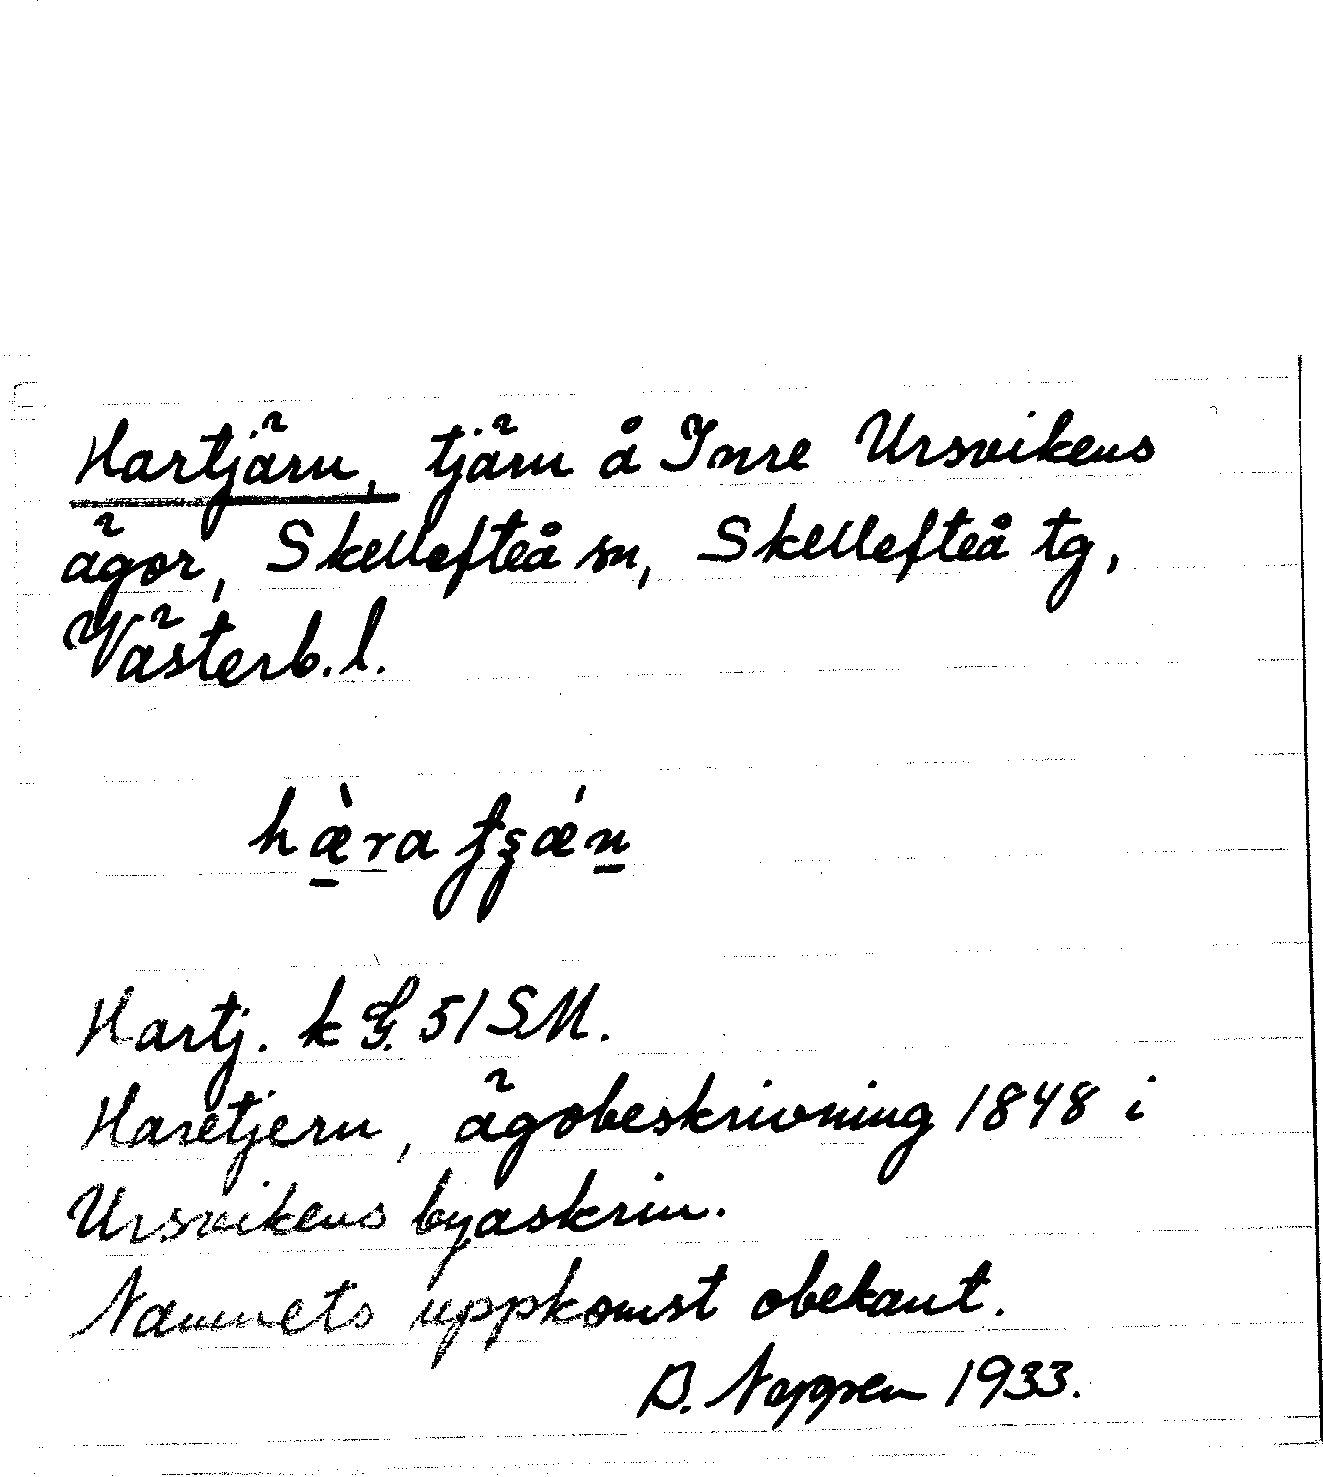 Hartjärn, tjärn å Inre Ursvikens
ägor, Skellefteå sn, Skellefteå tg,
Västerb. l.
Hartj. k G. 51 SM.
Haretjern, ägobeskrivning 1848 i
Ursvikens byaskrin.
Namnets uppkomst obekant.
1933.